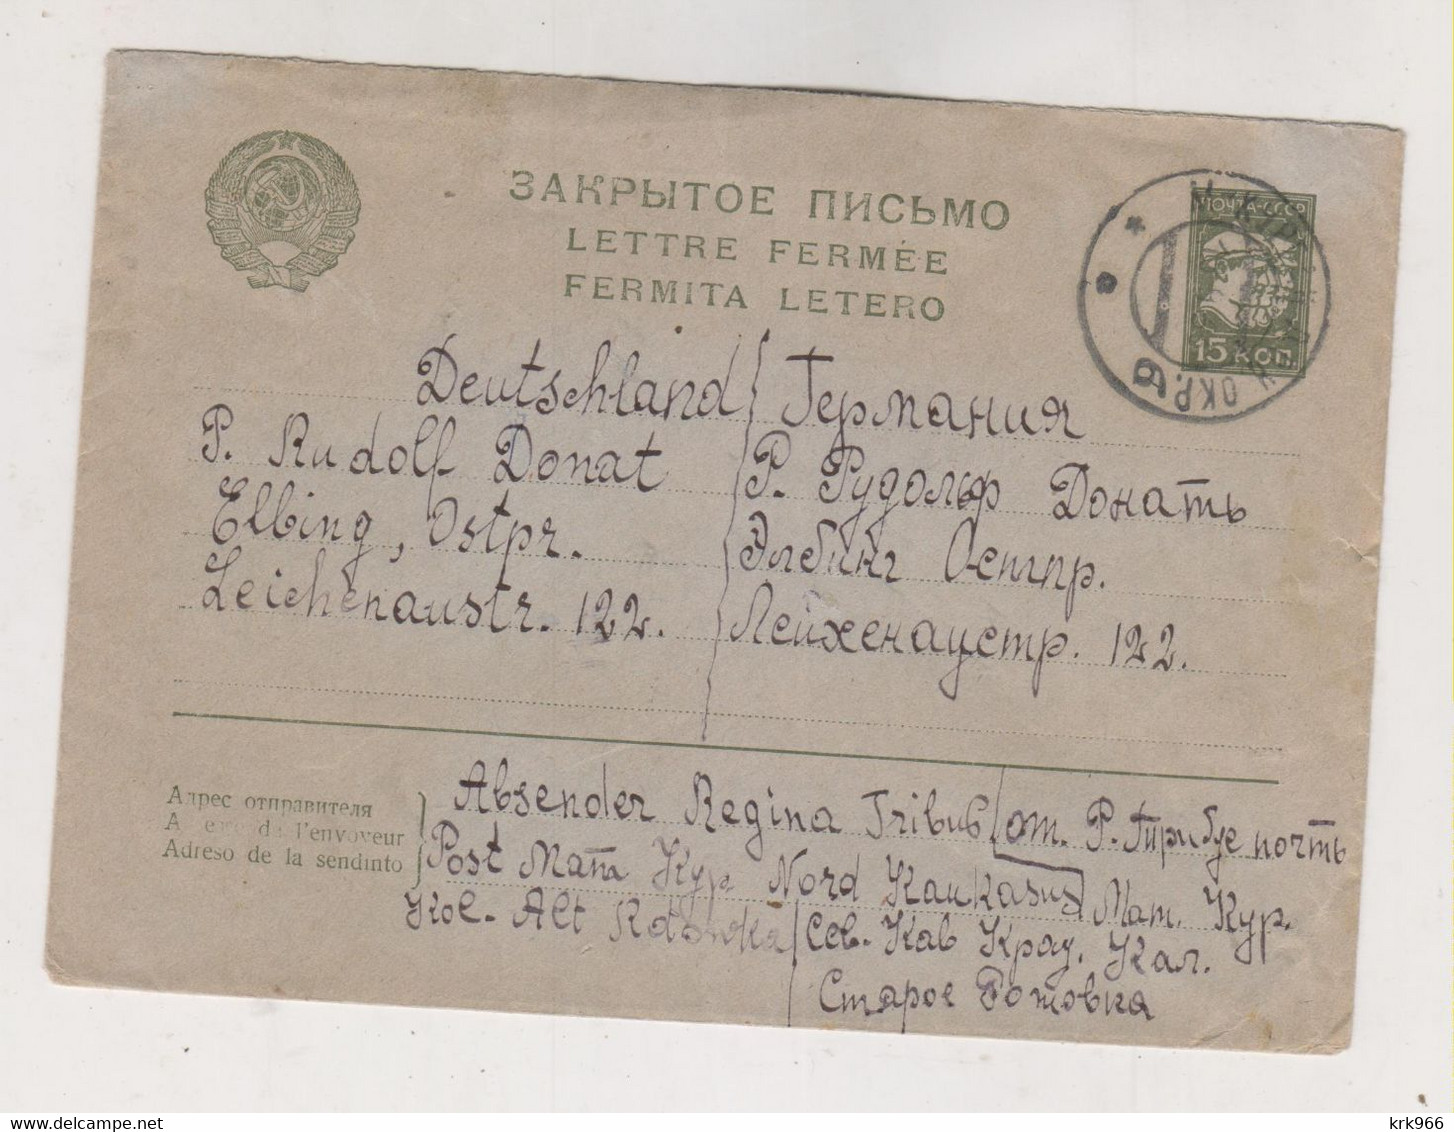 ЗАКРЫТОЕ ПИСЬМО
LETTRE FERMÉE
FERMITA LETERO
ПОЧТА-СССР
15 КОП
ОКР.
Deutschland Германия
P. Rudolf Donat Р. Рудольф Донатъ
Elbing, Ostpr. Элбинг Остпр.
Leichenaustr. 122. Лейхенаустр. 122.
Адрес отправителя
l'envoyeur
Adreso de la sendinto
Absender Regina Tribus от. Р. Трибус почтъ
Post Мат Кур Nord Kaukasus Мат. Кур.
Kol. Alt Сев. Кав Край. Кал.
Старое Ротовка
krk966